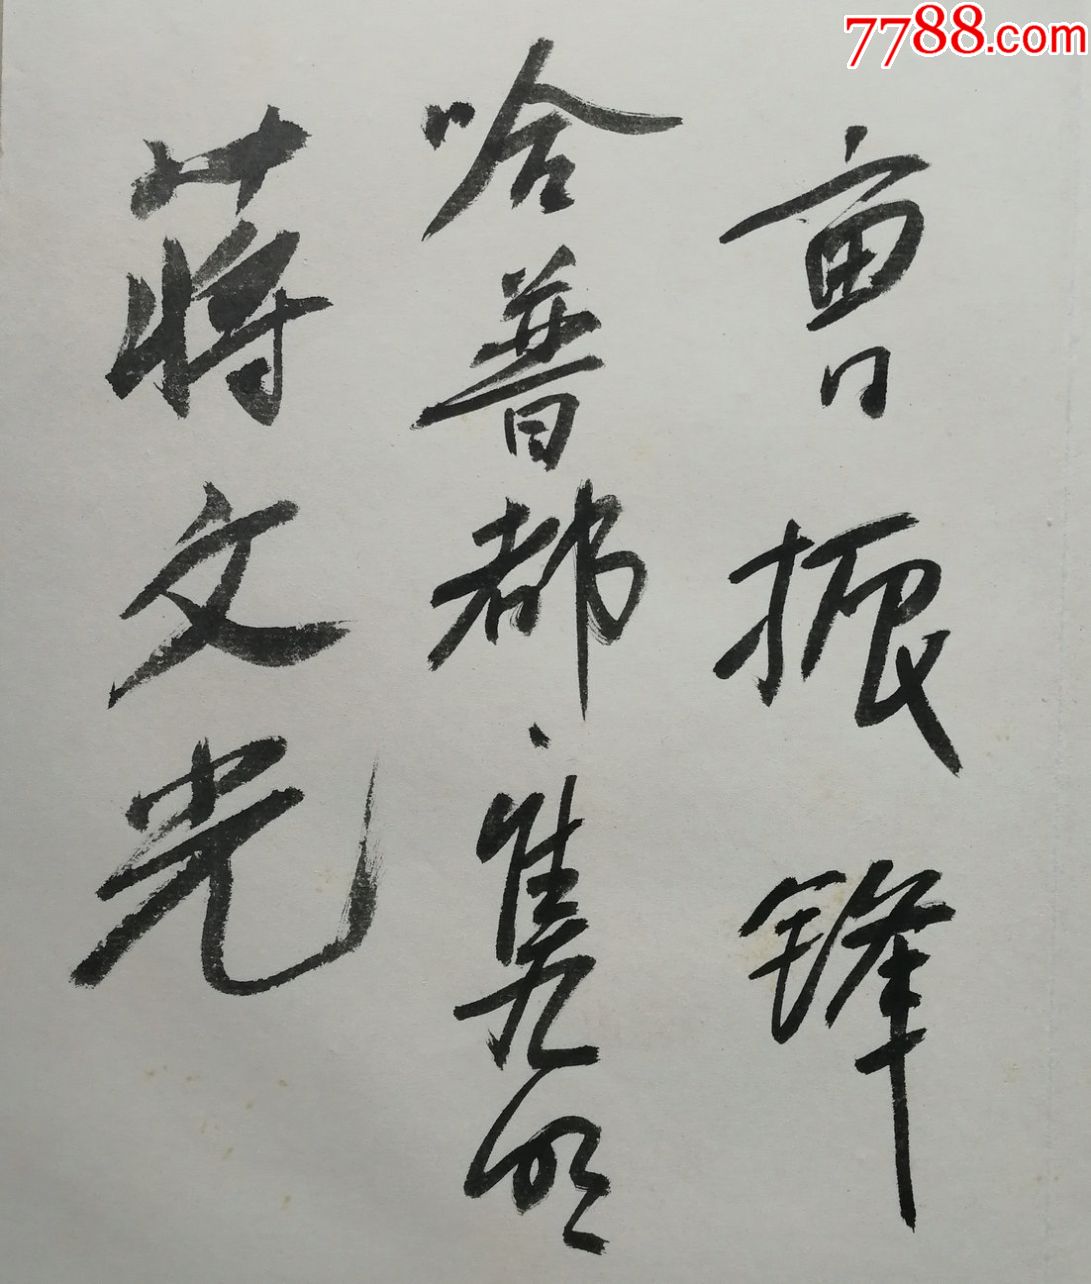 7788.com
曹振锋
哈普都·隽明
蒋文光